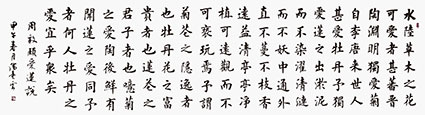 水陸草木之花
可愛者甚蕃晉
陶淵明獨愛菊
自李唐來世人
甚愛牡丹予獨
愛蓮之出淤泥
而不染濯清漣
而不妖中通外
直不蔓不枝香
遠益清亭亭淨
植可遠觀而不
可褻玩焉予謂
菊花之隱逸者
也牡丹花之富
貴者也蓮花之
君子者也噫菊
之愛陶後鮮有
聞蓮之愛同予
者何人牡丹之
愛宜乎衆矣
周敦頤愛蓮說
甲午春月